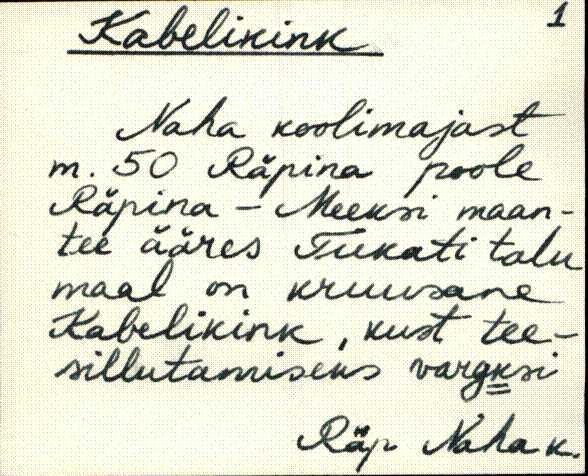 1
Kabelikink
Naha koolimajast
m. 50 Räpina poole
Räpina - Meeksi maan-
tee ääres Tukati talu
maal on kruusane
Kabelikink, kust tee-
sillutamiseks vargksi
Räp Naha k.